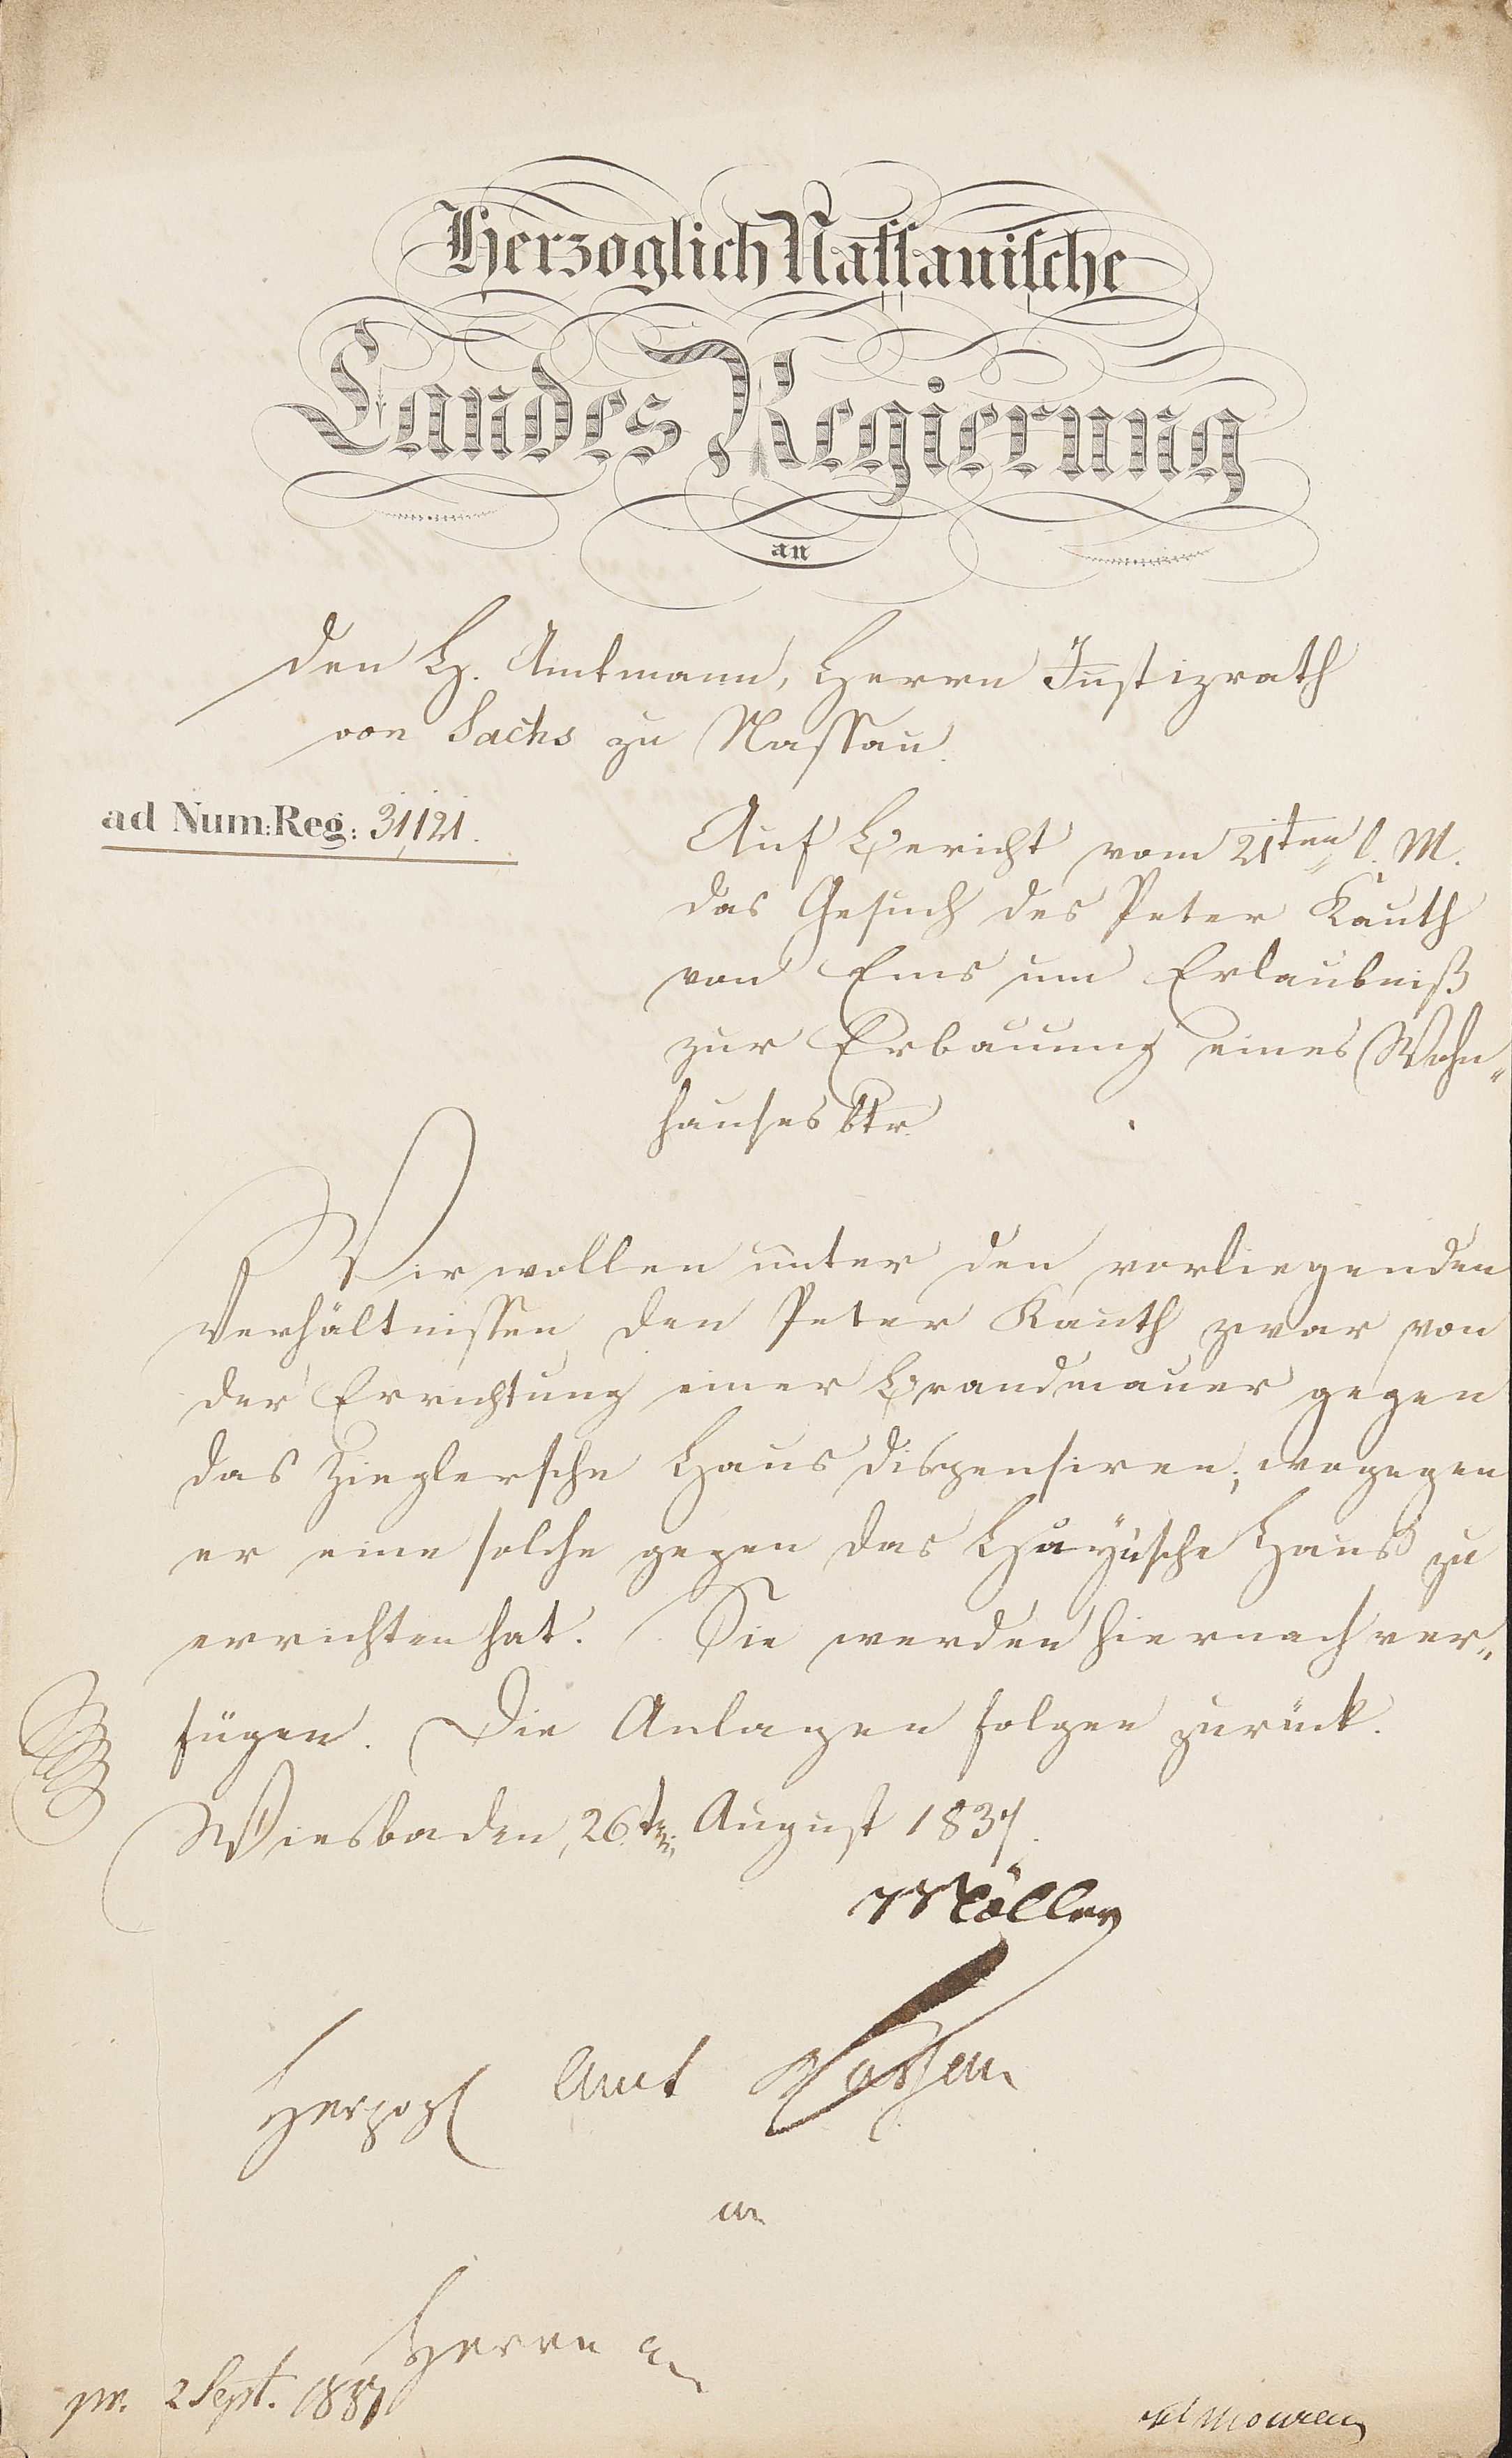 Herzoglich Nassauische
Landes Regierung
an
den H. Amtmann, Herrn Justizrath
von Sachs zu Nassau.
ad Num: Reg: 31,121.
Auf Bericht vom 21ten l. M.
das Gesuch des Peter Kauth
von Ems um Erlaubniß
zur Erbauung eines Wohn„
hauses btr.
Wir wollen unter den vorliegenden
Verhältnissen den Peter Kauth zwar von
der Errichtung einer Brandmauer gegen
das Zieglersche Haus dispensiren; wogegen
er eine solche gegen das Haus zu
errichten hat. Sie werden hiernach ver„
fügen. Die Anlagen folgen zurück.
Wiesbaden, 26ten August 1837.
Möller
Herzogl Amt Nassau
an
Herrn
pr. 2 Sept. 1837